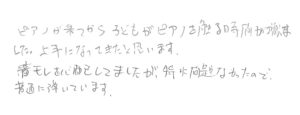 ピアノが来てから子どもがピアノを触る時間が増えま
した。上手になってきたと思います。
騒音も心配してましたが、特に問題なかったので、
普通に弾いています。